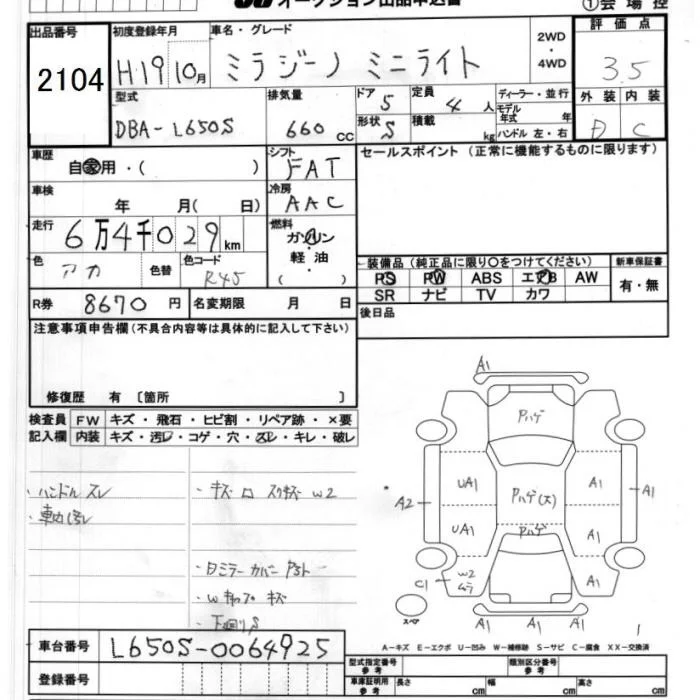 オークション出品申込書
①会場控
出品番号 2104
初度登録年月 H19 10月
車名・グレード ミラジーノ ミニライト
2WD・4WD
評価点 3.5
型式 DBA-L650S
排気量 660 cc
ドア 5
形状 S
定員 4 人
積載 kg
ディーラー・並行
モデル年式 年
ハンドル 左・右
外装 D
内装 C
車歴 自家用・( )
シフト FAT
セールスポイント (正常に機能するものに限ります)
車検 年 月( 日)
冷房 AAC
走行 6万4千029km
燃料 ガソリン 軽油・( )
色 アカ 色替
色コード R45
装備品 (純正品に限り○をつけてください)
PS PW ABS エアB AW
SR ナビ TV カワ
新車保証書 有・無
R券 8670 円
名変期限 月 日
後日品
注意事項申告欄(不具合内容等は具体的に記入して下さい)
修復歴 有 〔箇所 〕
検査員記入欄
FW キズ・飛石・ヒビ割・リペア跡・×要
内装 キズ・汚レ・コゲ・穴・スレ・キレ・破レ
・ハンドル スレ
・車内汚レ
・キズ ロ スリキズ W2
・日ミラーカバー
・W キャップ キズ
・下廻りS
A1
Pハゲ
UA1 Pハゲ(大) A1
A2 A1
UA1 Pハゲ A1
C1 W2 ムラ A1
スペア
A1 A1 A1
A-キズ E-エクボ U-凹み W-補修跡 S-サビ C-腐食 XX-交換済
車台番号 L650S-0064925
登録番号
型式指定番号 参考
類別区分番号 参考
車庫証明用 参考 長さ cm 幅 cm 高さ cm